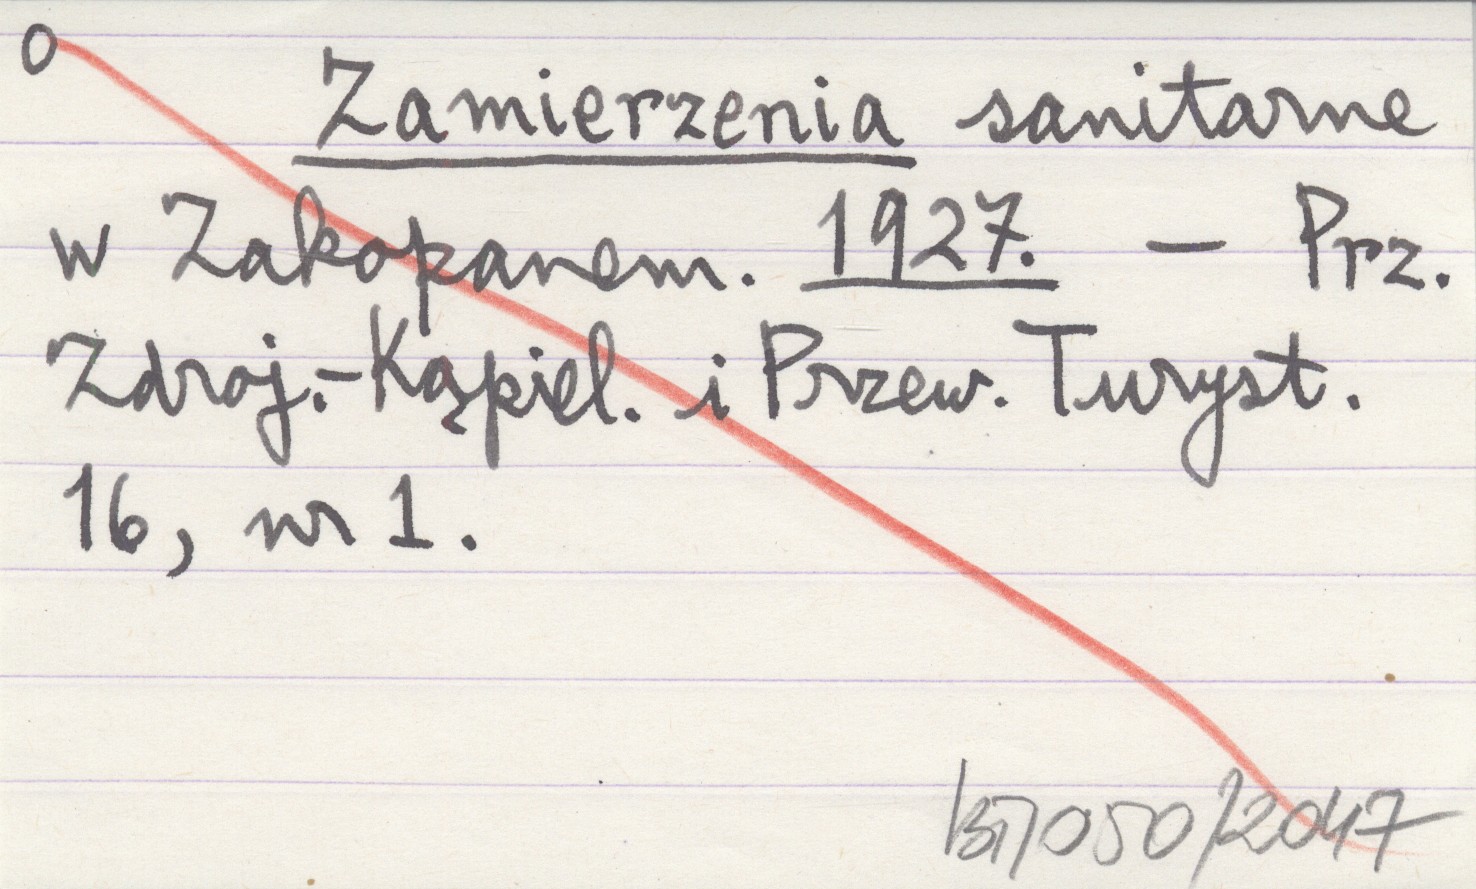 0
Zamierzenia sanitarne
w Zakopanem. 1927. — Prz.
Zdroj.-Kąpiel. i Przew. Turyst.
16, nr 1.